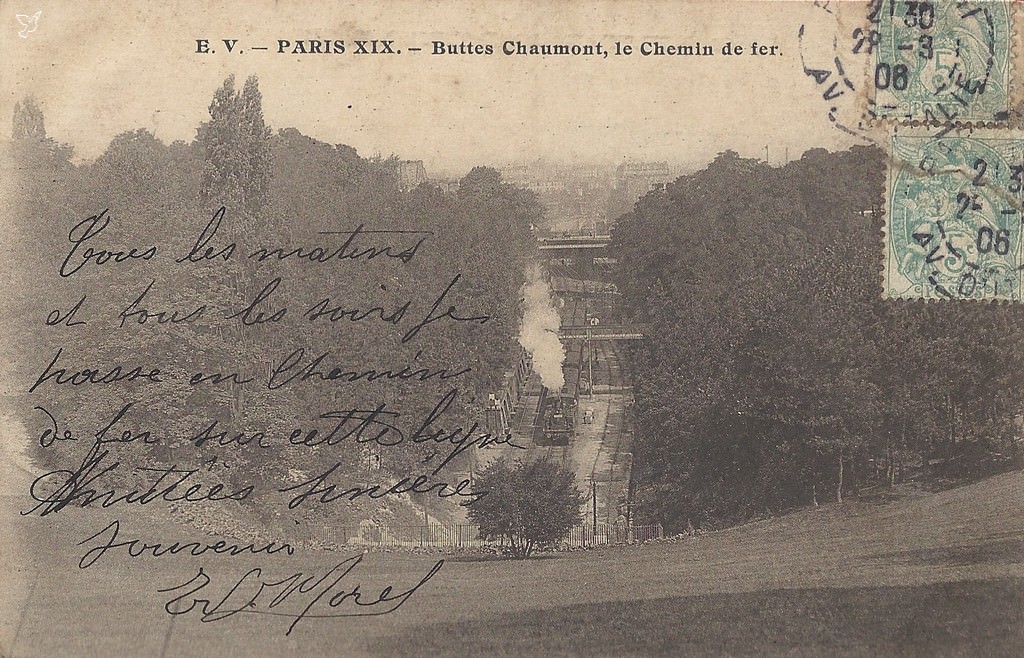 E. V. — PARIS XIX. — Buttes Chaumont, le Chemin de fer.
21 30
28 -3
06
AV.
5
2- 3
2-
06
AV.
5
Tous les matins
et tous les soirs je
passe en Chemin
de fer sur cette ligne
Amitiées sincères
souvenir
Morel